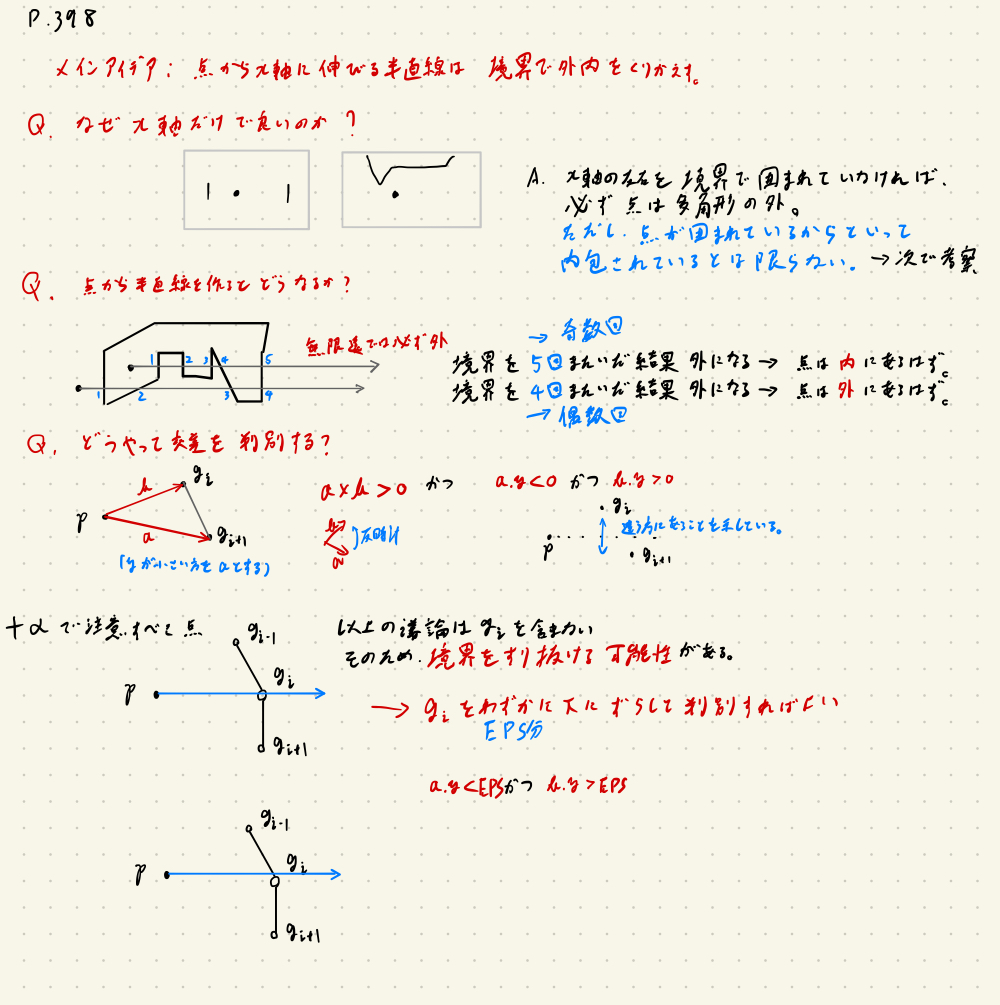 P.398
メインアイデア: 点からx軸に伸びる半直線は 境界で外内をくりかえす。
Q. なぜx軸だけで良いのか?
A. x軸の左右を境界で囲まれていなければ、
必ず点は多角形の外。
ただし、点が囲まれているからといって
内包されているとは限らない。→次で考察
Q. 点から半直線を作るとどうなるか?
無限遠では必ず外
1 2 3 4 5
1 2 3 4
→ 奇数回
境界を5回またいだ結果 外になる → 点は内にあるはず。
境界を4回またいだ結果 外になる → 点は外にあるはず。
→ 偶数回
Q. どうやって交差を判別する?
p b a gi gi+1
(yが小さい方をaとする)
a×b>0 かつ a.y<0 かつ b.y>0
b a 反時計
gi
違う方にあることを示している。
p gi+1
+αで注意すべき点
以上の議論はgiを含まない
そのため、境界をすり抜ける可能性がある。
gi-1
gi
p
gi+1
→ giをわずかに下にずらして判別すればよい
EPS分
a.y<EPSかつ b.y>EPS
gi-1
gi
p
gi+1